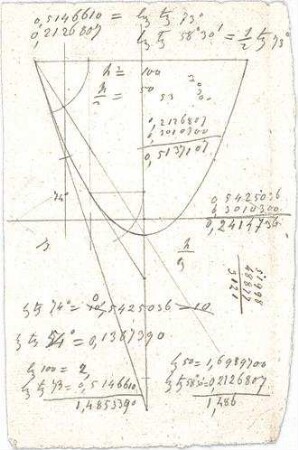 0,5146610 = lg tg 73°
0,2126807 lg tg 58°30' = 1/2 tg 73°
h = 100
h/2 = 50
0,2126807
0,3010300
0,5137107
74°
0,5425036
0,3010300
0,2414736
lg tg 74° = 0,5425036 = 10
lg tg 54° = 0,1387390
lg 100 = 2,
lg tg 73 = 0,5146610
1,4853390
lg 50 = 1,6989700
lg tg 58°30 = 0,2126807
1,486